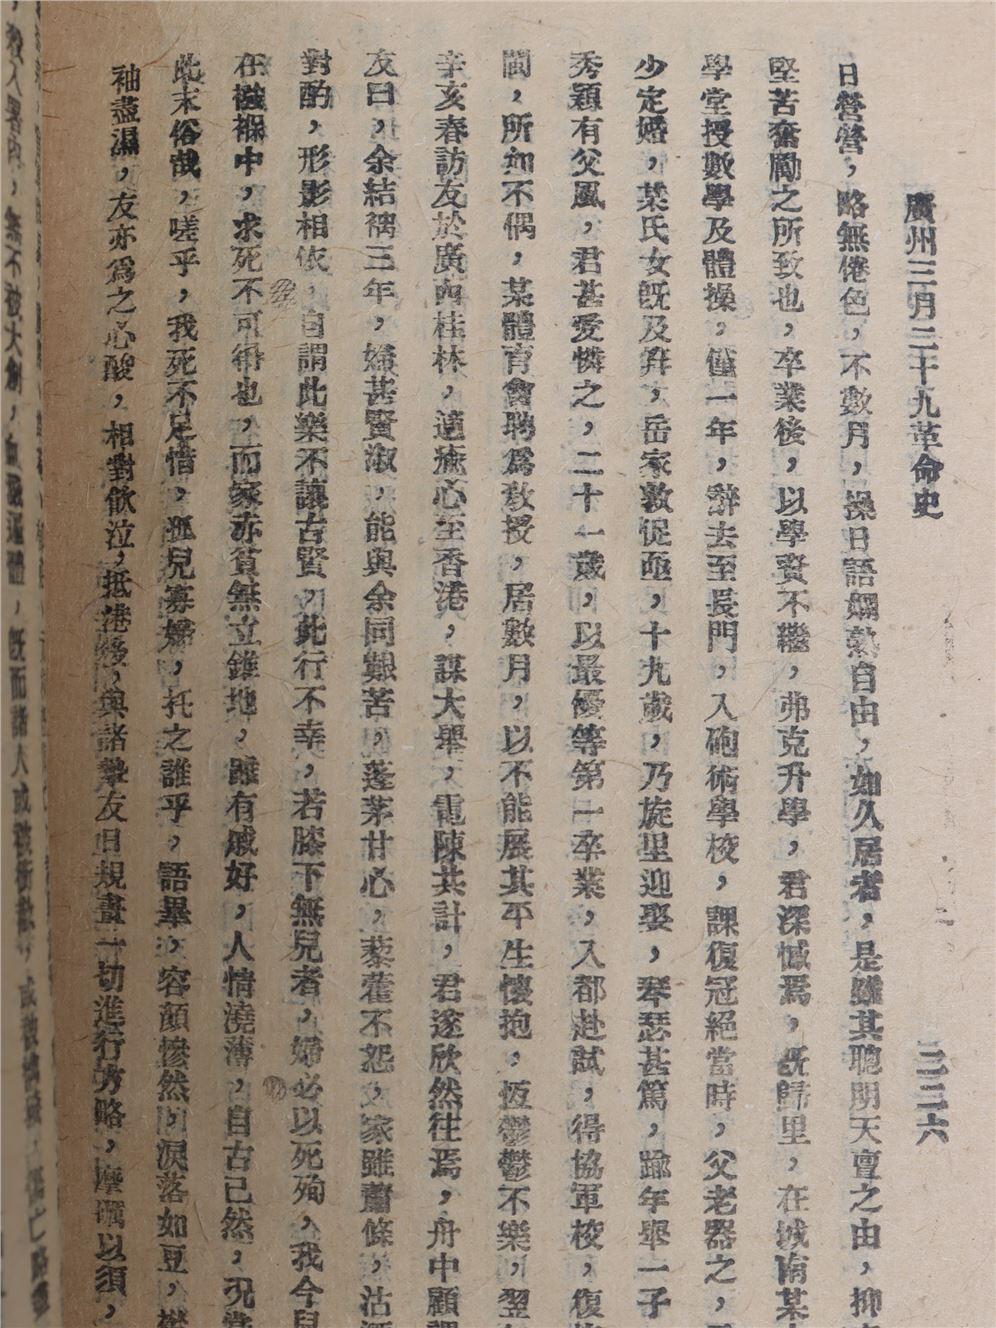 廣州三月二十九革命史
三三六
日營營，略無倦色，不數月，操日語嫻熟自由，如久居者，是雖其聰明天亶之由，抑
堅苦奮勵之所致也，卒業後，以學資不繼，弗克升學，君深憾焉，既歸里，在城南某
學堂授數學及體操，僅一年，辭去至長門，入砲術學校，課復冠絕當時，父老器之，
少定婚，某氏女既及笄，岳家敦促亟，十九歲，乃旋里迎娶，琴瑟甚篤，踰年舉一子
秀穎有父風，君甚愛憐之，二十一歲，以最優等第一卒業，入都赴試，得協軍校，復
閩，所如不偶，某體育會聘爲敎授，居數月，以不能展其平生懷抱，恆鬱鬱不樂，翌
辛亥春訪友於廣西桂林，適 心至香港，謀大舉，電陳其計，君遂欣然往焉，舟中顧
友曰，余結褵三年，婦甚賢淑，能與余同艱苦，蓬茅甘心，藜藿不怨，家雖蕭條，沽酒
對酌，形影相依，自謂此樂不讓古賢，此行不幸，若膝下無兒者，婦必以死殉，我今兒
在襁褓中，求死不可得也，而家亦貧無立錐地，雖有戚好，人情澆薄，自古已然，況當
此末俗哉，嗟乎，我死不足惜，孤兒寡婦，托之誰乎，語畢，容顏慘然，淚落如豆，襟
袖盡濕，友亦爲之心酸，相對飲泣，抵港後，與諸摯友日規畫一切進行方略，摩礪以須，